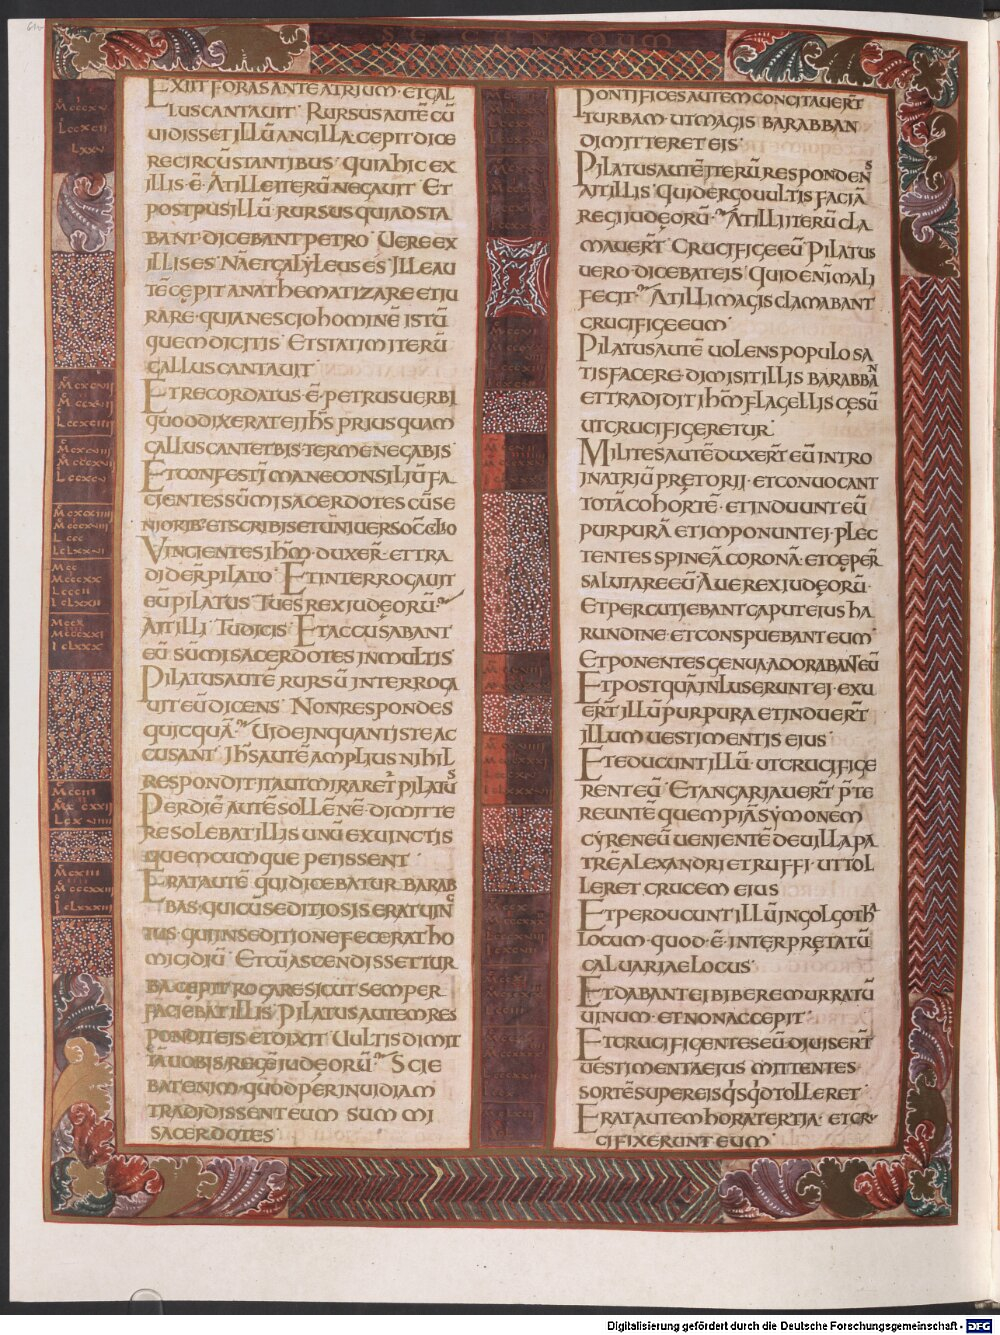 SECUNDUM
EXIIT FORAS ANTE ATRIUM· ET GAL
LUS CANTAVIT· RURSUS AUTĒ CŪ
UIDISSET ILLŪ ANCILLA· CEPIT DICE
RE CIRCŪSTANTIBUS· QUIA HIC EX
ILLIS Ē· AT ILLE ITERŪ NEGAUIT· ET
POST PUSILLŪ RURSUS QUI ADSTA
BANT· DICEBANT PETRO· UERE EX
ILLIS ES· NĀ ET GALYLEUS ES· ILLE AU
TĒ CĘPIT ANATHEMATIZARE ET IU
RARE· QUIA NESCIO HOMINĒ ISTŪ
QUEM DICITIS· ET STATIM ITERŪ
GALLUS CANTAUIT·
ET RECORDATUS· Ē· PETRUS UERBI
QUOD DIXERAT EI IHS̄ PRIUSQUAM
GALLUS CANTET BIS· TER ME NEGABIS·
ET CONFESTĪ MANE CONSILIŪ FA
CIENTES SŪMI SACERDOTES CŪ SE
NIORIB· ET SCRIBIS ET UNIUERSO CC̄ILIO
VINCIENTES IHM̄· DUXER̄· ET TRA
DIDER̄ PILATO· ET INTERROGAUIT
EŪ PILATUS· TU ES REX IUDĘORŪ·
AT ILLI· TU DICIS· ET ACCUSABANT
EŪ· SUMI SACERDOTES IN MULTIS·
PILATUS AUTĒ RURSŪ INTERROGA
UIT EŪ DICENS· NON RESPONDES
QUICQUĀ· UIDE IN QUANTIS TE AC
CUSANT· IHS̄ AUTĒ AMPLIUS NIHIL
RESPONDIT· ITA UT MIRARET PILATUS
PER DIĒ AUTĒ SOLLĒNĒ· DIMITTE
RE SOLEBAT ILLIS UNŪ EX UINCTIS
QUEMCUMQUE PETISSENT·
ERAT AUTĒ QUI DICEBATUR BARAB
BAS· QUI CŪ SEDITIOSIS ERAT UINC
TUS· QUI IN SEDITIONE FECERAT HO
MICIDIŪ· ET CŪ ASCENDISSET TUR
BA CEPIT ROGARE SICUT SEMPER
FACIEBAT ILLIS· PILATUS AUTEM RES
PONDIT EIS ET DIXIT· UULTIS DIMIT
TĀ UOBIS REGĒ IUDEORŪ· SCIE
BAT ENIM· QUOD PER INUIDIAM
TRADIDISSENT EUM SUMMI
SACERDOTES·
PONTIFICES AUTEM CONCITAUER̄T
TURBAM· UT MAGIS BARABBAN
DIMITTERET EIS·
PILATUS AUTĒ ITERŪ RESPONDENS
AIT ILLIS· QUID ERGO UULTIS FACIĀ
REGI IUDĘORŪ· AT ILLI ITERŪ CLA
MAUER̄T· CRUCIFIGE EŪ· PILATUS
UERO DICEBAT EIS· QUID ENĪ MALI
FECIT· AT ILLI MAGIS CLAMABANT
CRUCIFIGE EUM·
PILATUS AUTĒ UOLENS POPULO SA
TISFACERE· DIMISIT ILLIS BARABBAN
ET TRADIDIT IHM̄ FLAGELLIS CĘSŪ
UT CRUCIFIGERETUR·
MILITES AUTĒ DUXER̄T EŪ INTRO
IN ATRIŪ PRĘTORII· ET CONUOCANT
TOTĀ COHORTĒ· ET INDUUNT EŪ
PURPURĀ· ET IMPONUNT EI· PLEC
TENTES SPINEĀ CORONĀ· ET CĘPER̄
SALUTARE EŪ· AUE REX IUDĘORŪ·
ET PERCUTIEBANT CAPUT EIUS HA
RUNDINE· ET CONSPUEBANT EUM·
ET PONENTES GENUA· ADORABANT EŪ
ET POSTQUĀ INLUSERUNT EI· EXU
ER̄T ILLŪ PURPURA· ET INDUER̄T
ILLUM UESTIMENTIS EIUS·
ET EDUCUNT ILLŪ· UT CRUCIFIGE
RENT EŪ· ET ANGARIAUER̄T P̄TE
REUNTĒ QUEMPIĀ SYMONEM
CYRENEŪ UENIENTĒ DE UILLA· PA
TRĒ ALEXANDRI ET RUFFI· UT TOL
LERET CRUCEM EIUS
ET PERDUCUNT ILLŪ IN GOLGOTHA
LOCUM· QUOD· Ē· INTERPRĘTATŪ
CALUARIAE LOCUS·
ET DABANT EI BIBERE MURRATŪ
UINUM· ET NON ACCEPIT·
ET CRUCIFIGENTES EŪ· DIUISER̄T
UESTIMENTA EIUS· MITTENTES
SORTĒ SUPER EIS QS QD TOLLERET·
ERAT AUTEM HORA TERTIA· ET CRU
CIFIXERUNT EUM·
Digitalisierung gefördert durch die Deutsche Forschungsgemeinschaft - DFG